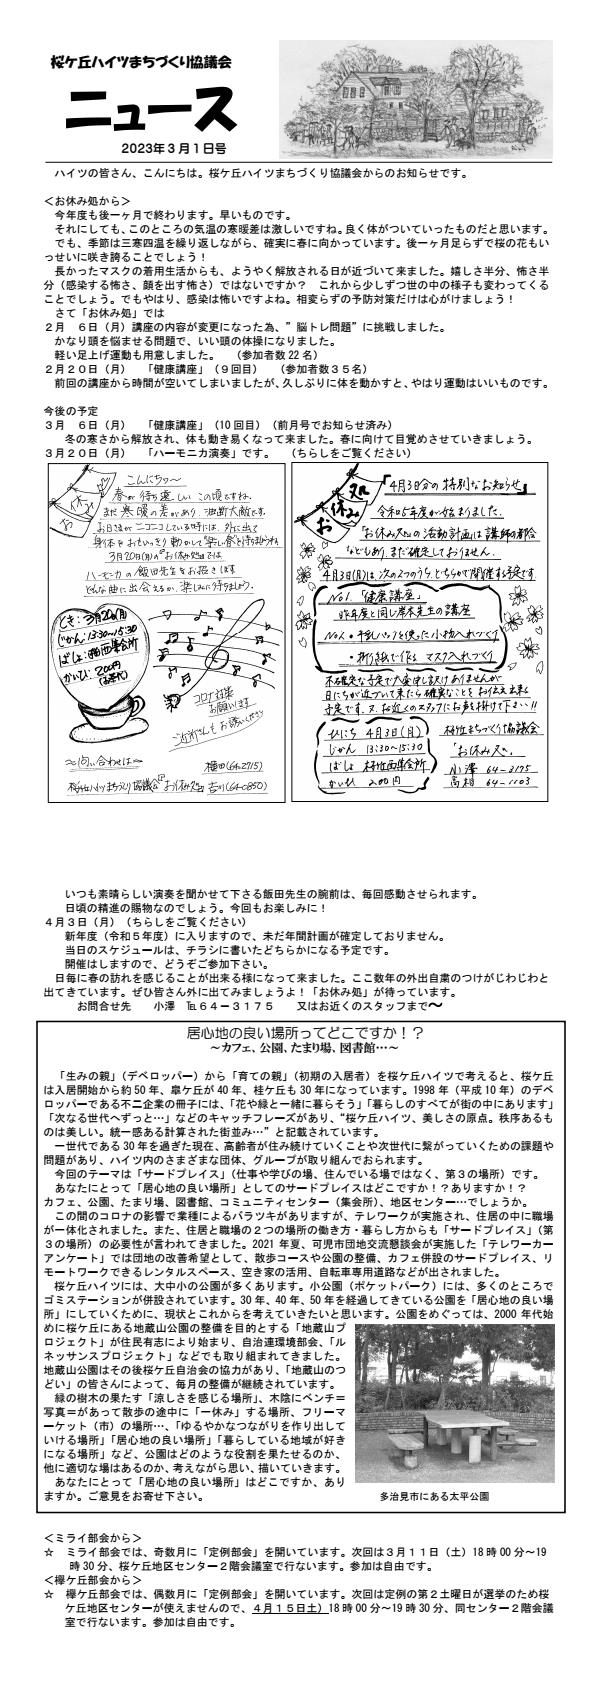 桜ケ丘ハイツまちづくり協議会
ニュース
2023年3月1日号
ハイツの皆さん、こんにちは。桜ケ丘ハイツまちづくり協議会からのお知らせです。
＜お休み処から＞
今年度も後一ヶ月で終わります。早いものです。
それにしても、このところの気温の寒暖差は激しいですね。良く体がついていったものだと思います。
でも、季節は三寒四温を繰り返しながら、確実に春に向かっています。後一ヶ月足らずで桜の花もい
っせいに咲き誇ることでしょう！
長かったマスクの着用生活からも、ようやく解放される日が近づいて来ました。嬉しさ半分、怖さ半
分（感染する怖さ、顔を出す怖さ）ではないですか？　これから少しずつ世の中の様子も変わってくる
ことでしょう。でもやはり、感染は怖いですよね。相変らずの予防対策だけは心がけましょう！
さて「お休み処」では
２月　６日（月）講座の内容が変更になった為、”脳トレ問題”に挑戦しました。
かなり頭を悩ませる問題で、いい頭の体操になりました。
軽い足上げ運動も用意しました。　（参加者数22名）
２月２０日（月）「健康講座」（９回目）　（参加者数３５名）
前回の講座から時間が空いてしまいましたが、久しぶりに体を動かすと、やはり運動はいいものです。
今後の予定
３月　６日（月）　「健康講座」（10回目）（前月号でお知らせ済み）
冬の寒さから解放され、体も動き易くなって来ました。春に向けて目覚めさせていきましょう。
３月２０日（月）　「ハーモニカ演奏」です。　（ちらしをご覧ください）
お休み処
こんにちわ〜
春が待ち遠しいこの頃ですね。
まだ寒暖の差があり、油断大敵です。
お日さまがニコニコしている時には、外に出て
身体をおもいっきり動かして“楽しい春”を待ちましょうね
3月20日(月)の“お休み処”では
ハーモニカの飯田先生をお招きします
どんな曲に出会えるか、楽しみに待ちましょう。
とき：3月20日(月)
じかん：13:30〜15:30
ばしょ：桜ヶ丘西集会所
かいひ：200円
(お茶代)
コロナ対策
お願いします
ご近所さんもお誘いください
〜問い合わせは〜
横田(64-2715)
桜ケ丘ハイツまちづくり協議会『お休み処』 吉川(64-0850)
お休み処
『4月3日分の特別なお知らせ』
令和5年度が始まりました。
『お休み処』の活動計画は講師の都合
などもあり、まだ確定しておりません。
4月3日(月)は、次の2つのうち、どちらかで開催する予定です
No1.「健康講座」
昨年度と同じ岸本先生の講座
No2.・牛乳パックを使った小物入れづくり
・折り紙で作るマスク入れづくり
不確定な予定で大変申し訳けありませんが
日にちが近づいて来たら確実なことをお伝え出来る
予定です。又、お近くのスタッフにお声を掛けて下さい!!
ひにち　4月3日(月)
じかん　13:30〜15:30
ばしょ　桜ケ丘西集会所
かいひ　200円
桜ケ丘まちづくり協議会
「お休み処」
小澤　64-3175
高村　64-1103
いつも素晴らしい演奏を聞かせて下さる飯田先生の腕前は、毎回感動させられます。
日頃の精進の賜物なのでしょう。今回もお楽しみに！
４月３日（月）（ちらしをご覧ください）
新年度（令和５年度）に入りますので、未だ年間計画が確定しておりません。
当日のスケジュールは、チラシに書いたどちらかになる予定です。
開催はしますので、どうぞご参加下さい。
日毎に春の訪れを感じることが出来る様になって来ました。ここ数年の外出自粛のつけがじわじわと
出てきています。ぜひ皆さん外に出てみましょうよ！「お休み処」が待っています。
お問合せ先　　小澤　℡６４－３１７５　　又はお近くのスタッフまで〜
居心地の良い場所ってどこですか！？
〜カフェ、公園、たまり場、図書館…〜
「生みの親」（デベロッパー）から「育ての親」（初期の入居者）を桜ケ丘ハイツで考えると、桜ケ丘
は入居開始から約50年、皐ケ丘が40年、桂ケ丘も30年になっています。1998年（平成10年）のデベ
ロッパーである不二企業の冊子には、「花や緑と一緒に暮らそう」「暮らしのすべてが街の中にあります」
「次なる世代へずっと…」などのキャッチフレーズがあり、“桜ケ丘ハイツ、美しさの原点。秩序あるも
のは美しい。統一感ある計算された街並み…”と記載されています。
一世代である30年を過ぎた現在、高齢者が住み続けていくことや次世代に繋がっていくための課題や
問題があり、ハイツ内のさまざまな団体、グループが取り組んでおられます。
今回のテーマは「サードプレイス」（仕事や学びの場、住んでいる場ではなく、第３の場所）です。
あなたにとって「居心地の良い場所」としてのサードプレイスはどこですか！？ありますか！？
カフェ、公園、たまり場、図書館、コミュニティセンター（集会所）、地区センター…でしょうか。
この間のコロナの影響で業種によるバラツキがありますが、テレワークが実施され、住居の中に職場
が一体化されました。また、住居と職場の２つの場所の働き方・暮らし方からも「サードプレイス」（第
３の場所）の必要性が言われてきました。2021年夏、可児市団地交流懇談会が実施した「テレワーカー
アンケート」では団地の改善希望として、散歩コースや公園の整備、カフェ併設のサードプレイス、リ
モートワークできるレンタルスペース、空き家の活用、自転車専用道路などが出されました。
桜ケ丘ハイツには、大中小の公園が多くあります。小公園（ポケットパーク）には、多くのところで
ゴミステーションが併設されています。30年、40年、50年を経過してきている公園を「居心地の良い場
所」にしていくために、現状とこれからを考えていきたいと思います。公園をめぐっては、2000年代始
めに桜ケ丘にある地蔵山公園の整備を目的とする「地蔵山プ
ロジェクト」が住民有志により始まり、自治連環境部会、「ル
ネッサンスプロジェクト」などでも取り組まれてきました。
地蔵山公園はその後桜ケ丘自治会の協力があり、「地蔵山のつ
どい」の皆さんによって、毎月の整備が継続されています。
緑の樹木の果たす「涼しさを感じる場所」、木陰にベンチ＝
写真＝があって散歩の途中に「一休み」する場所、フリーマ
ーケット（市）の場所…、「ゆるやかなつながりを作り出して
いける場所」「居心地の良い場所」「暮らしている地域が好き
になる場所」など、公園はどのような役割を果たせるのか、
他に適切な場はあるのか、考えながら思い、描いていきます。
あなたにとって「居心地の良い場所」はどこですか、あり
ますか。ご意見をお寄せ下さい。
多治見市にある太平公園
＜ミライ部会から＞
☆　ミライ部会では、奇数月に「定例部会」を開いています。次回は３月１１日（土）18時00分〜19
時30分、桜ケ丘地区センター２階会議室で行ないます。参加は自由です。
＜欅ケ丘部会から＞
☆　欅ケ丘部会では、偶数月に「定例部会」を開いています。次回は定例の第２土曜日が選挙のため桜
ケ丘地区センターが使えませんので、４月１５日土）18時00分〜19時30分、同センター２階会議
室で行ないます。参加は自由です。